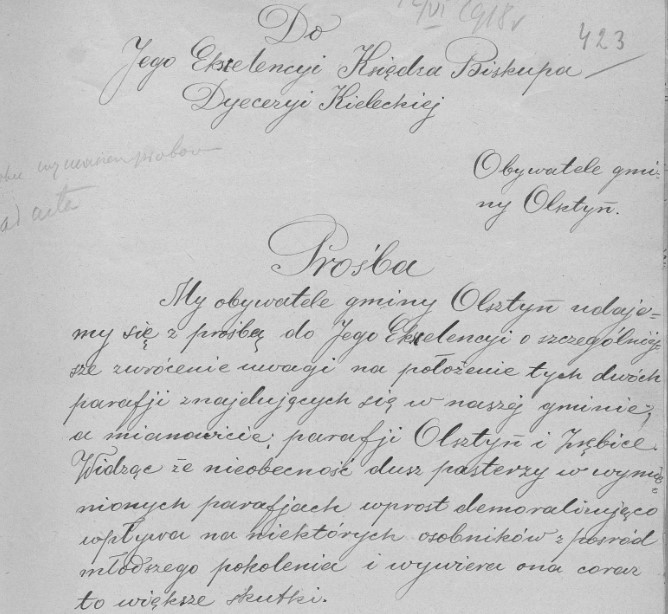 VI 1918 r
423
Do
Jego Ekselencyi Księdza Biskupa
Dyecezyi Kieleckiej
ad acta
Obywatele gmi-
ny Olsztyń.
Prośba
My obywatele gminy Olsztyń udaje-
my się z prośbą do Jego Ekselencyi o szczególniéj-
sze zwrócenie uwagi na położenie tych dwóch
parafji znajdujących się w naszéj gminie,
a mianowicie, parafji Olsztyń i Zrębice.
Widząc że nieobecność dusz pasterzy w wymie-
nionych parafjach wprost demoralizująco
wpływa na niektórych osobników z pośród
młodszego pokolenia i wywiera ona coraz
to większe skutki.